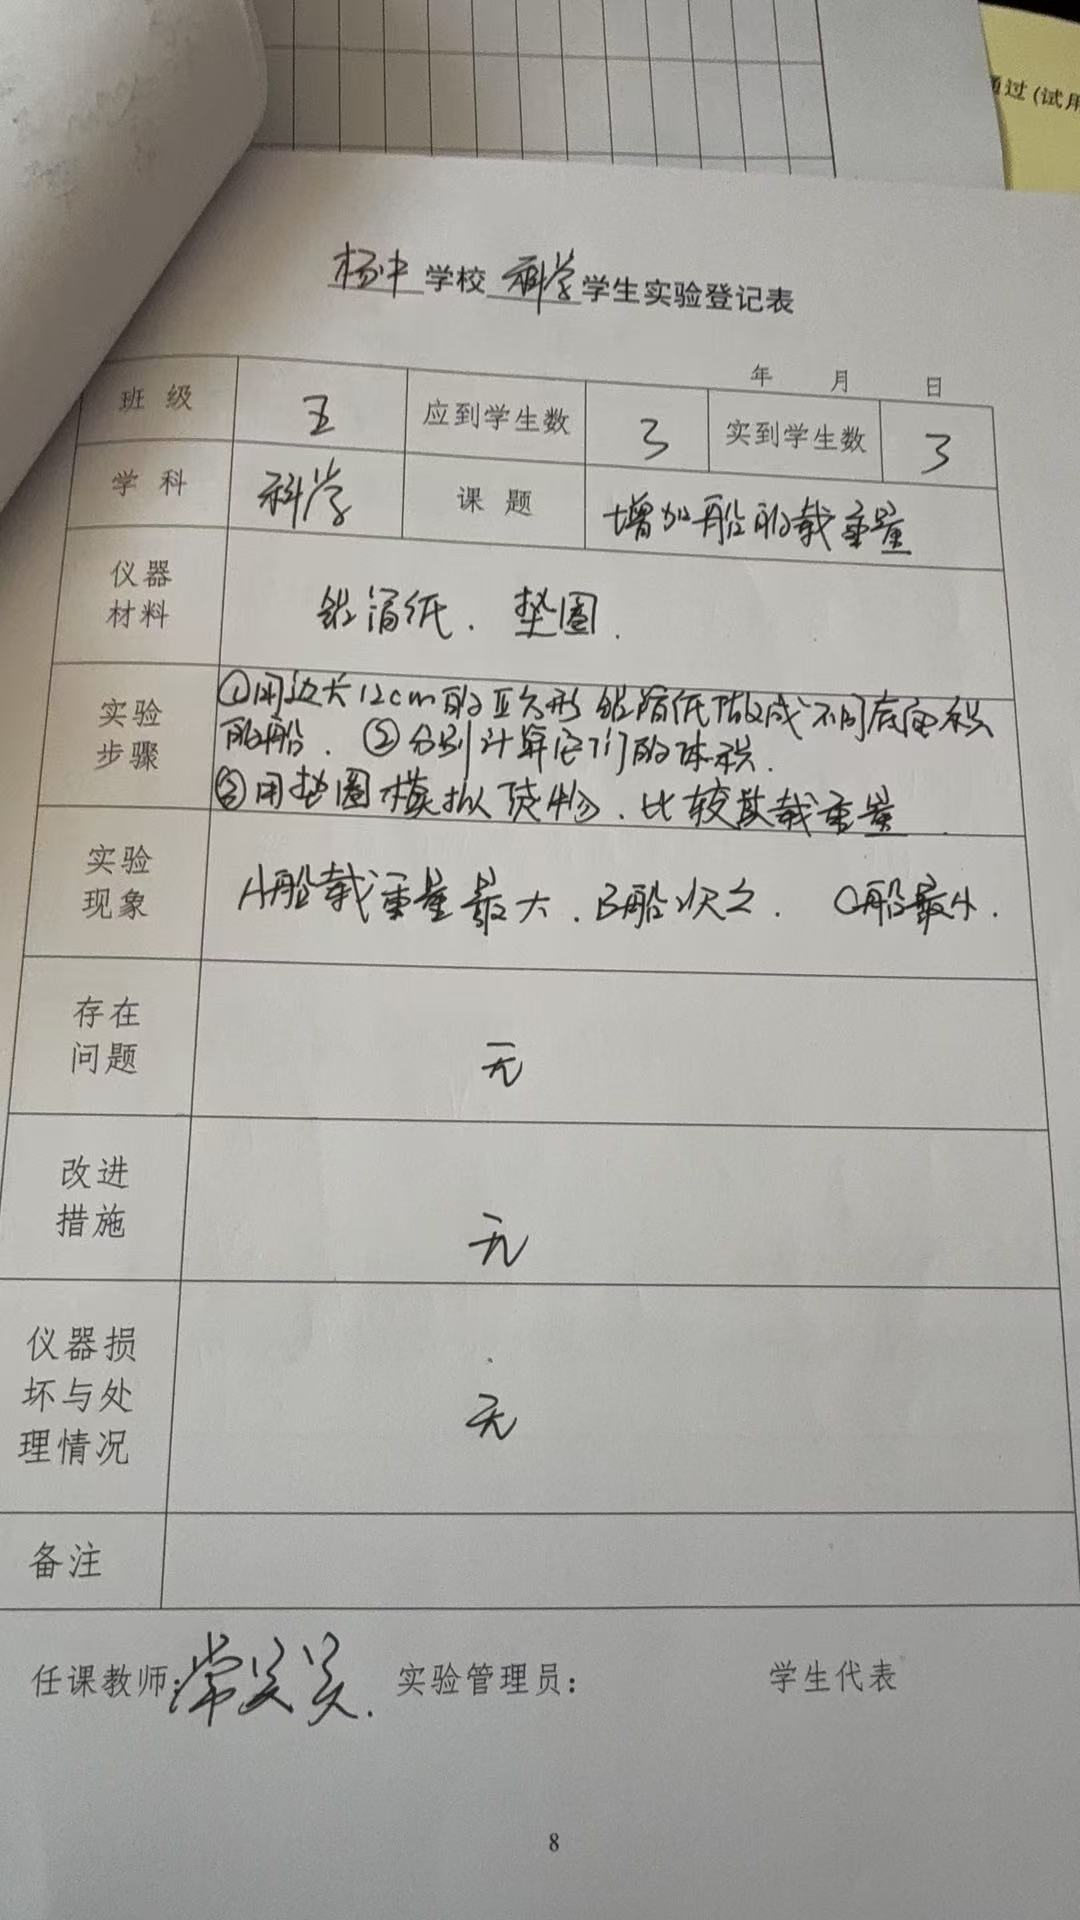 通过(试用
杨中学校科学学生实验登记表
年 月 日
班级 五 应到学生数 3 实到学生数 3
学科 科学 课题 增加船的载重量
仪器材料 铝箔纸、垫圈.
实验步骤 ①用边长12cm的正方形铝箔纸做成不同底面积
的船. ②分别计算它们的体积.
③用垫圈模拟货物、比较其载重量.
实验现象 A船载重量最大、B船次之. C船最小.
存在问题 无
改进措施 无
仪器损坏与处理情况 无
备注
任课教师: 常 实验管理员: 学生代表
8